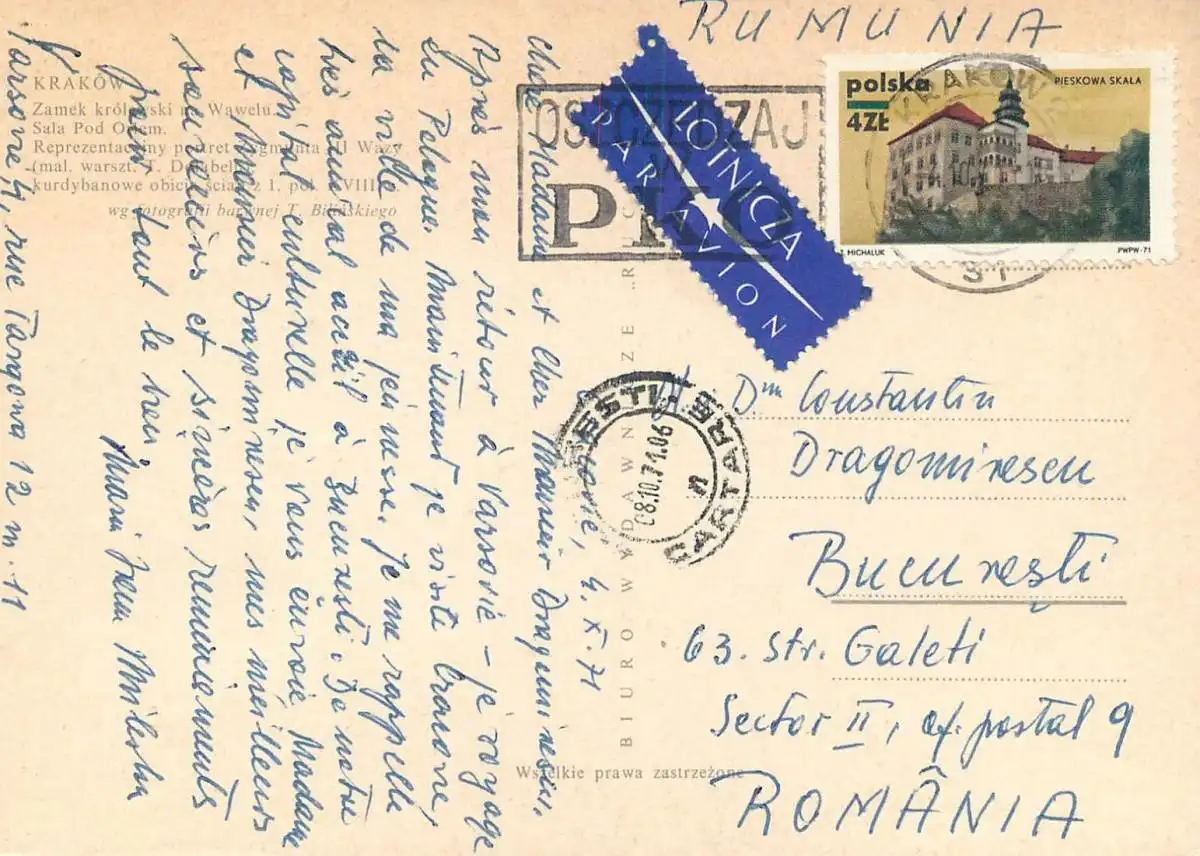 RUMUNIA
KRAKÓW
Zamek królewski na Wawelu.
Sala Pod Orłem.
Reprezentacyjny portret Zygmunta III Wazy
(mal. warszt. T. Dolabelli
kurdybanowe obicie ścian z 1. poł. XVIII w.
wg fotografii barwnej T. Bilińskiego
OSZCZĘDZAJ
W
PKO
LOTNICZA
PAR AVION
polska
4ZŁ
PIESKOWA SKAŁA
MICHALUK
PWPW-71
KRAKÓW
31
Cracovie, 4. X. 71
Chère Madame et Cher Monsieur Dragomirescu,
Après mon rétour à Varsovie – je voyage
en Pologne. Maintenant je visite Cracovie,
la ville de ma jeunesse. Je me rappelle
très amical accueil à Bucuresti. De notre
capital culturelle je vous envoie, Madame
et Monsieur Dragomirescu, mes meilleurs
souvenirs et sincères remerciements
pour tout le bien
Maria Irena Mileska
Varsovie 41, rue Targowa 12 m. 11
BIURO WYDAWNICZE RUCH
Wszelkie prawa zastrzeżone
BUCUREȘTI
CARTARE
08.10.71.06
Dm Constantin
Dragomirescu
București
63. str. Galati
Sector II, of. postal 9
ROMÂNIA